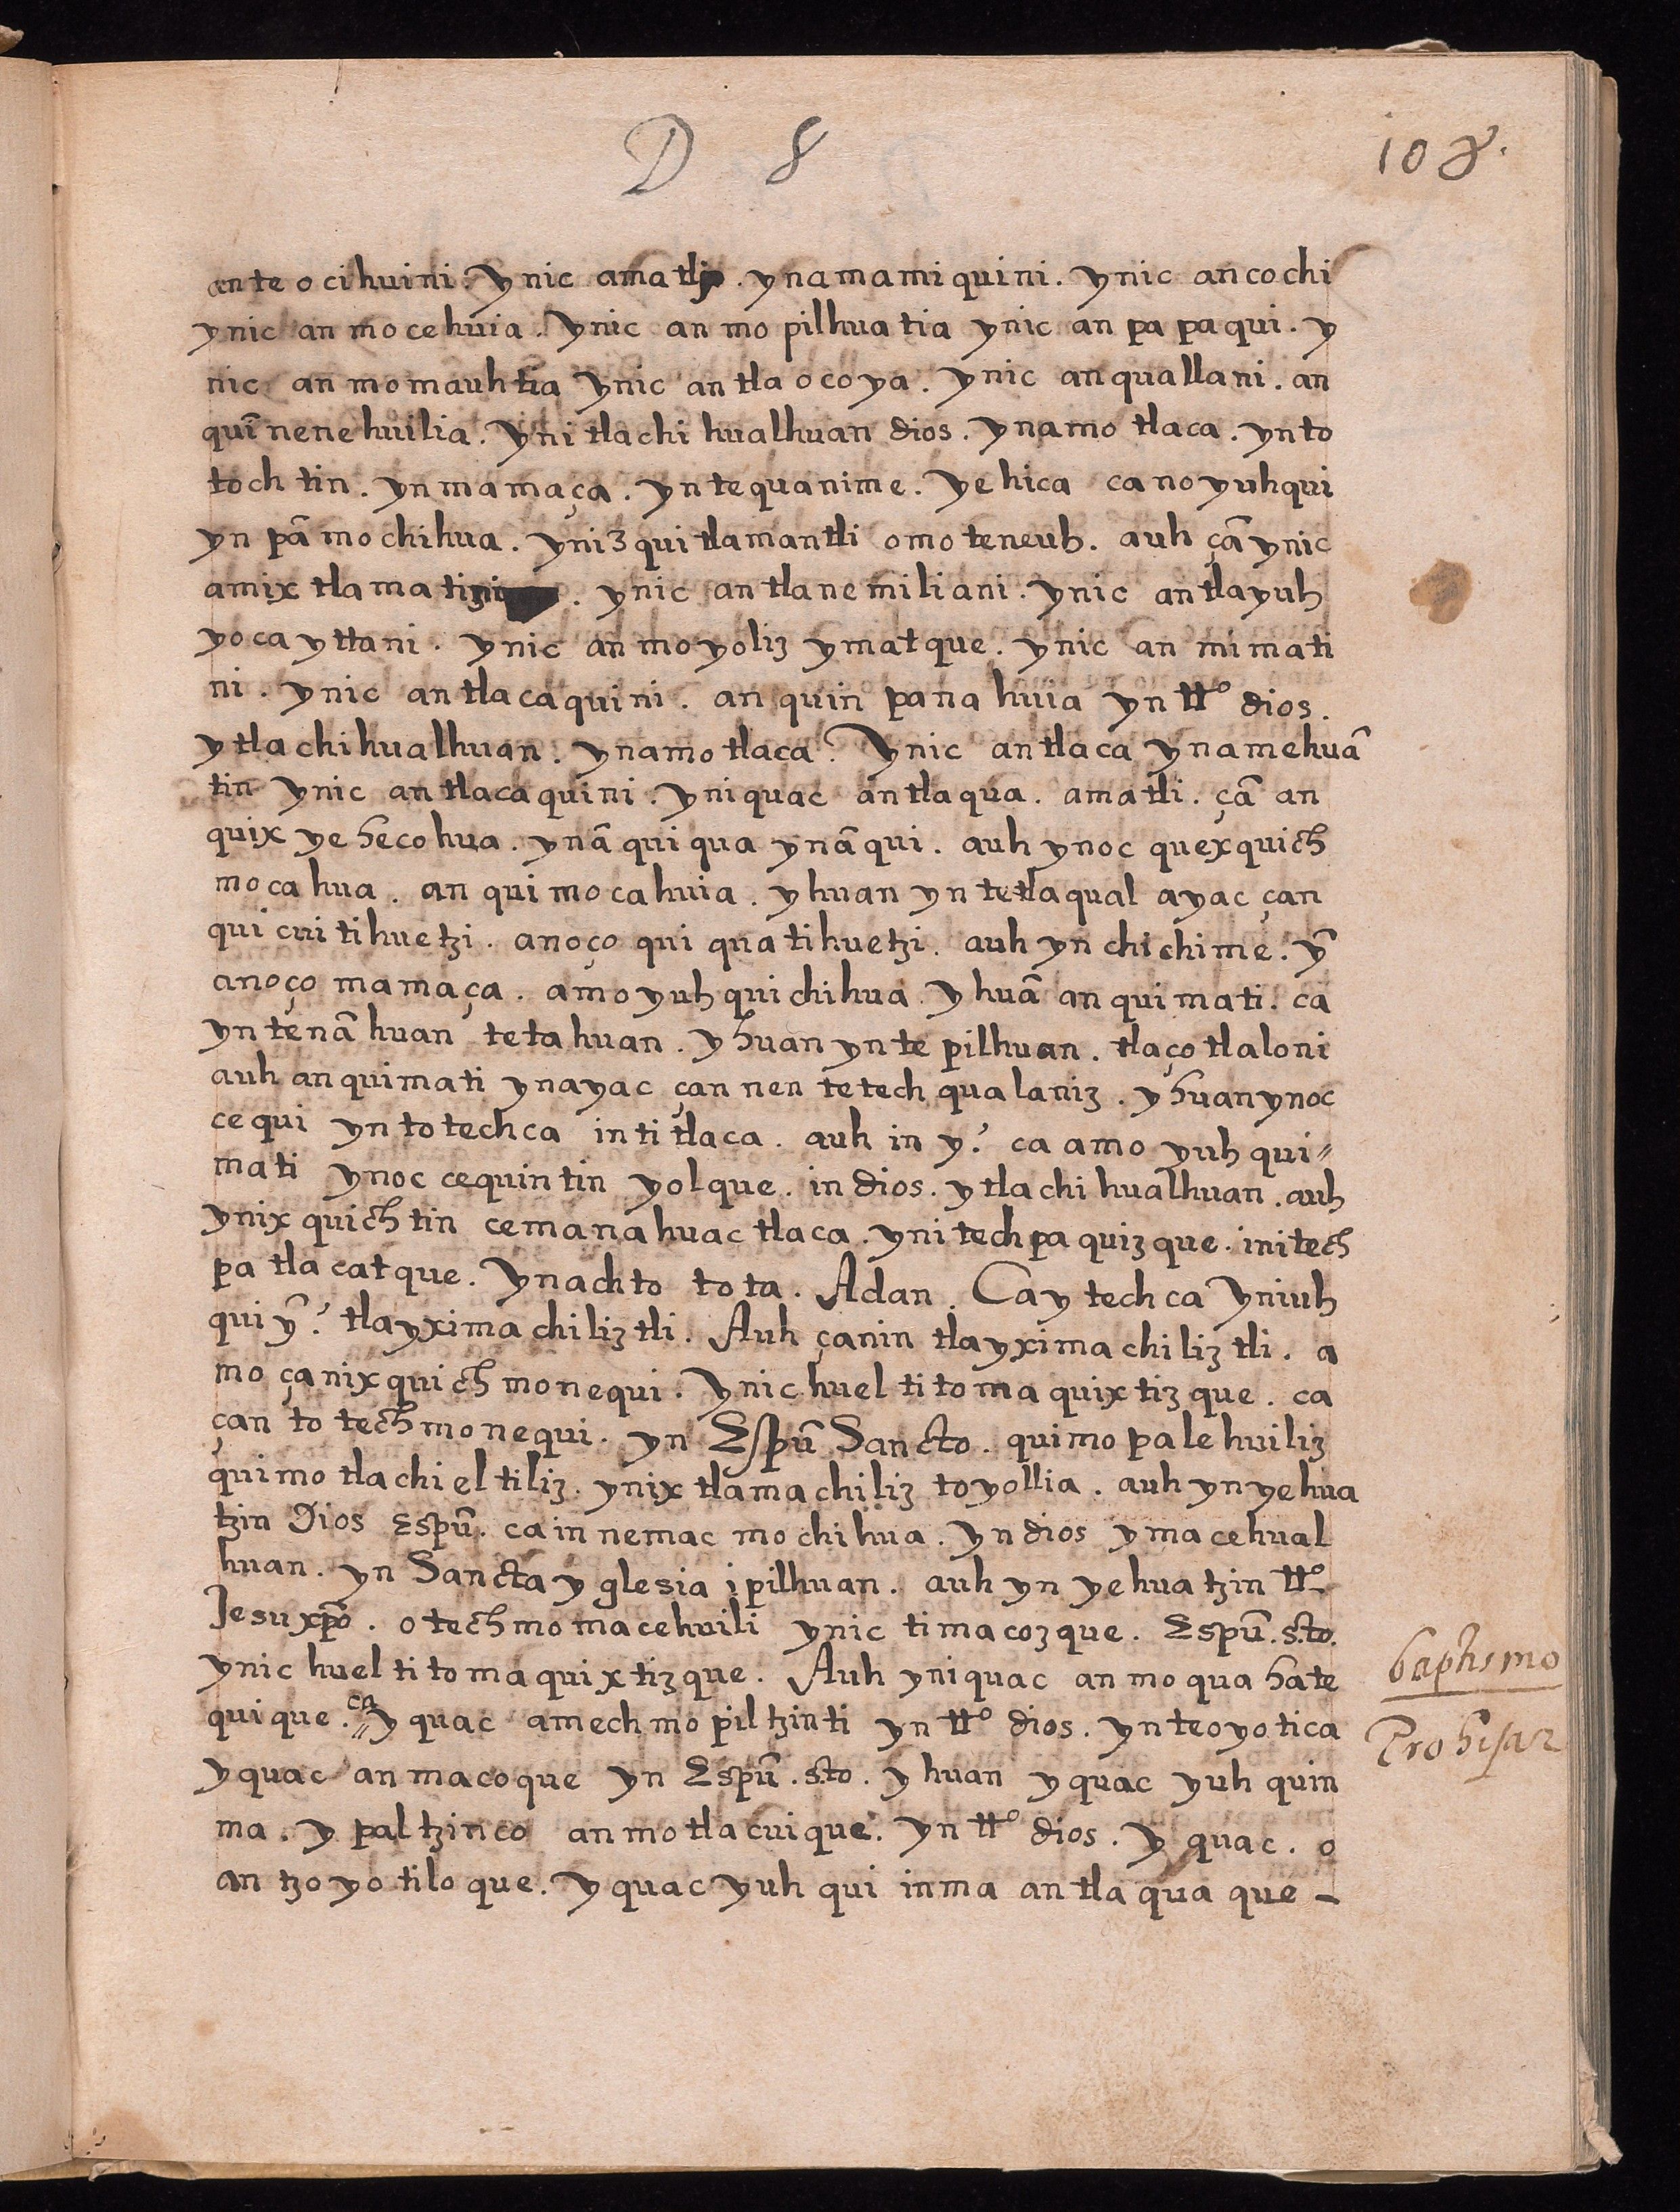 D 8
108.
anteocihuini. ynic amatli. ynamamiquini. ynic ancochi
ynic anmocehuia. ynic anmopilhuatia ynic anpapaqui. y
nic anmomauhtia ynic antlaocoya. ynic anquallani. an
quĩnenehuilia. yni tlachihualhuan dios. ynamo tlaca. ynto
tochtin. ynmamaça. yntequanime. yehica canoyuhqui
yn pã mochihua. ynizquitlamantli omoteneuh. auh çã ynic
amixtlamatini. ynic antlanemiliani. ynic antlayuh
yocayttani. ynic anmoyoliz ymatque. ynic anmimati
ni. ynic antlacaquini. anquin panahuia yn ttº dios.
ytlachihualhuan. ynamotlaca. Ynic antlaca ynamehuã
tin ynic antlacaquini. yniquac antlaqua. amatli. çã an
quixyehecohua. ynã quiqua ynãqui. auh ynoc quexquich
mocahua. anquimocahuia. yhuan yntetlaqual ayac çan
quicuitihuetzi. anoço quiquatihuetzi. auh ynchichime. ỹ
anoço mamaça. amoyuh quichihua. yhuã anquimati. ca
yntenãhuan tetahuan. yhuan yntepilhuan. tlaçotlaloni
auh anquimati ynayac çan nen tetech qualaniz. yhuan ynoc
cequi yntotechca intitlaca. auh in y? ca amo yuhqui=
mati ynoc cequintin yolque. in dios. ytlachihualhuan. auh
ynixquichtin cemanahuac tlaca. ynitechpa quizque. initech
pa tlacatque. Ynachto tota. Adan. Ca ytechca Yniuh
qui ỹ? tlayximachiliztli. Auh çanin tlayximachiliztli. a
mo çanixquich monequi. Ynic huel titomaquixtizque. ca
çan totech monequi. yn Espũ Sancto. quimopalehuiliz
quimotlachieltiliz. ynixtlamachiliz toyollia. auh ynyehua
tzin Dios Espũ. ca in nemac mochihua. yn dios ymacehual
huan. yn Sancta yglesia ipilhuan. auh yn yehuatzin ttº
Jesu xpõ. otechmomacehuili ynic timacozque. Espũ. sto.
ynic huel titomaquixtizque. Auh yniquac anmoquahate
quique. ca yquac amechmopiltzinti yn ttº dios. ynteoyotica
yquac anmacoque yn Espũ. sto. yhuan yquac yuhquin
ma. ypaltzinco anmotlacuique. yn ttº dios. yquac. o
antzoyotiloque. yquac yuhqui inma antlaquaque -
baptismo